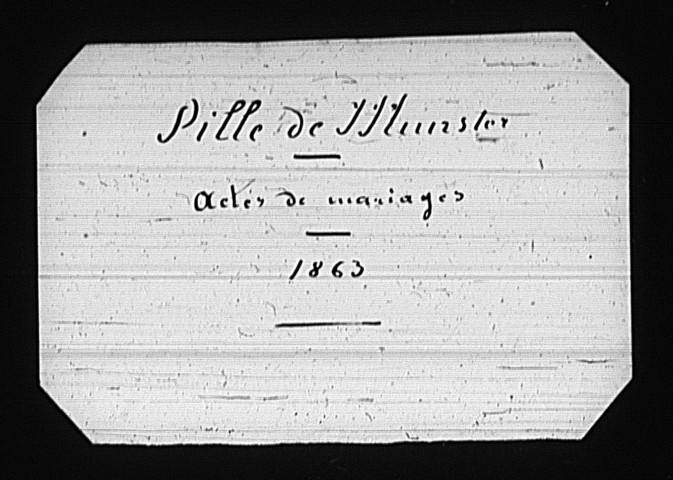 Ville de Munster
Actes de mariages
1863